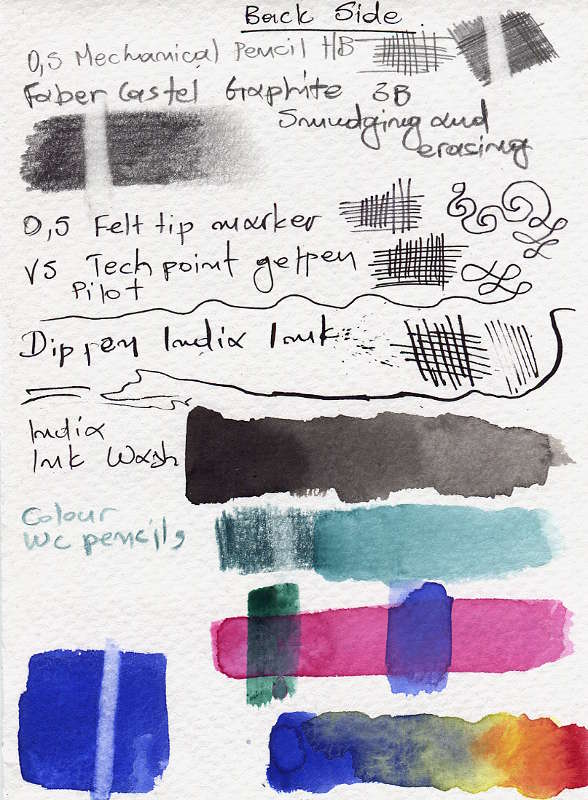 Back Side
0,5 Mechanical Pencil HB
Faber Castel Graphite 3B
Smudging and
erasing
0,5 Felt tip marker
V5 Tech point gelpen
Pilot
Dip pen India Ink
India
Ink Wash
Colour
WC pencils